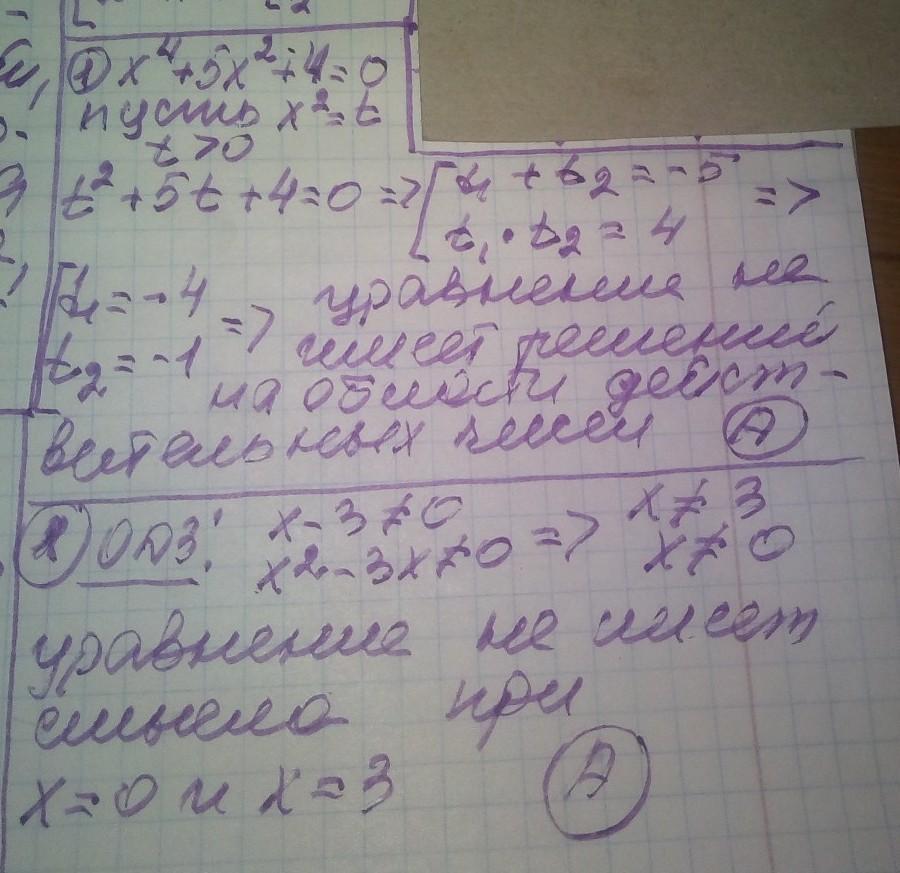 ① x⁴+5x²+4=0
пусть x²=t
t>0
t²+5t+4=0 => [t₁+t₂=-5 =>
t₁·t₂=4
[t₁=-4 => уравнение не
t₂=-1 имеет решений
на области дейст-
вительных чисел Ⓐ
ОДЗ: x-3≠0 => x≠3
x²-3x≠0 x≠0
уравнение не имеет
смысла при
x=0 и x=3